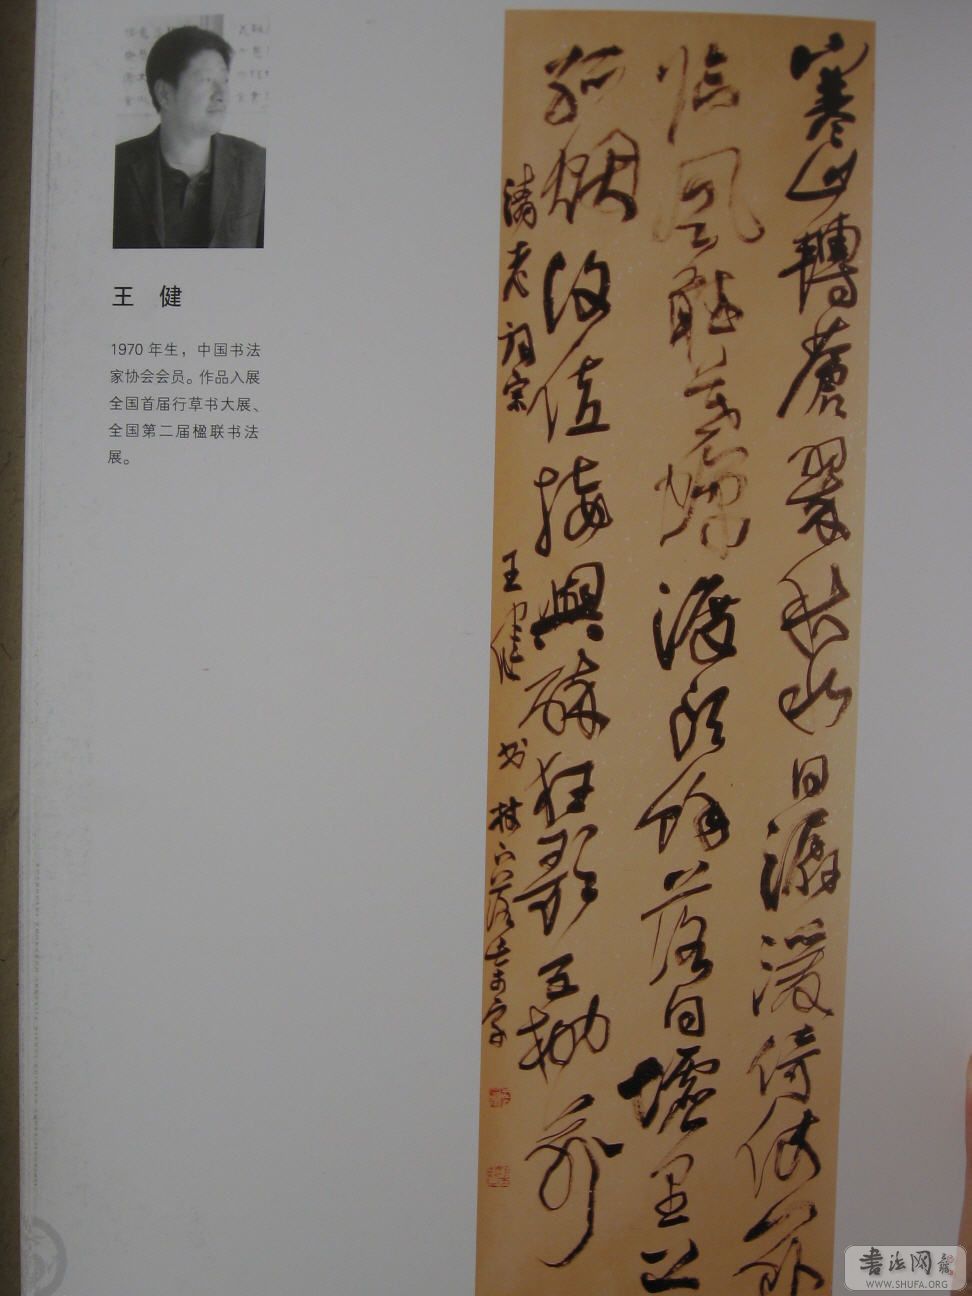 王 健
1970 年生，中国书法
家协会会员。作品入展
全国首届行草书大展、
全国第二届楹联书法
展。
寒山轉蒼翠秋水日潺湲倚仗
臨風聽暮蟬渡頭餘落日墟里上
孤烟復值接輿醉狂歌五柳前
清老詞宗 王健书
書法网
WWW.SHUFA.ORG